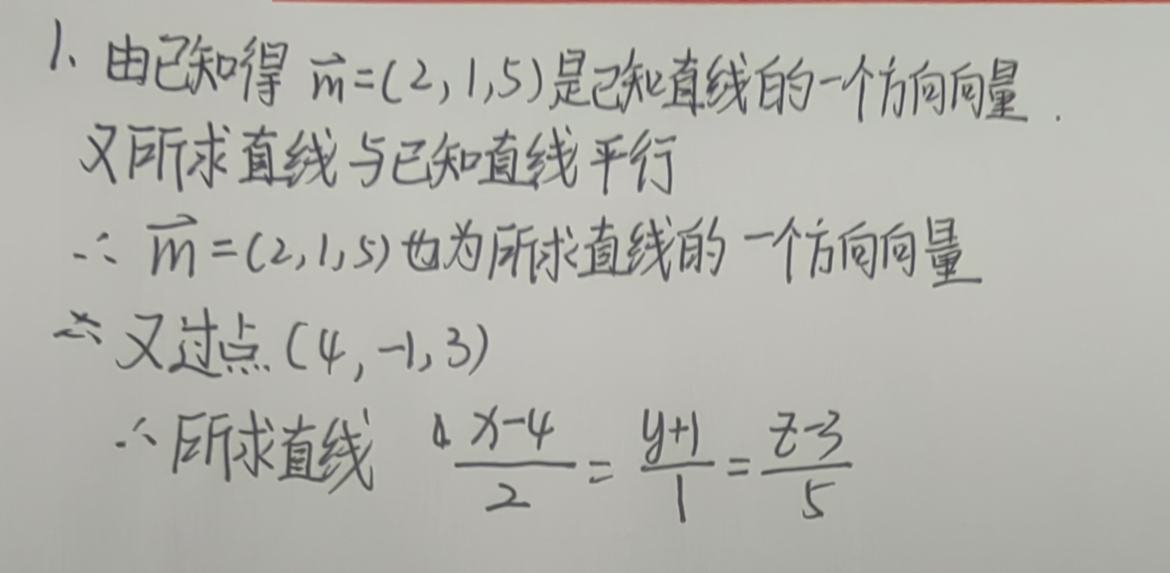 1、由已知得 m⃗=(2,1,5)是已知直线的一个方向向量.
又所求直线与已知直线平行
∴ m⃗=(2,1,5)也为所求直线的一个方向向量
又过点(4,-1,3)
∴所求直线 (x-4)/2 = (y+1)/1 = (z-3)/5